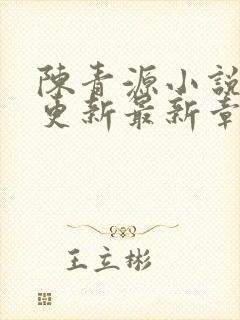 陳青源小說
更新最新章
王立彬